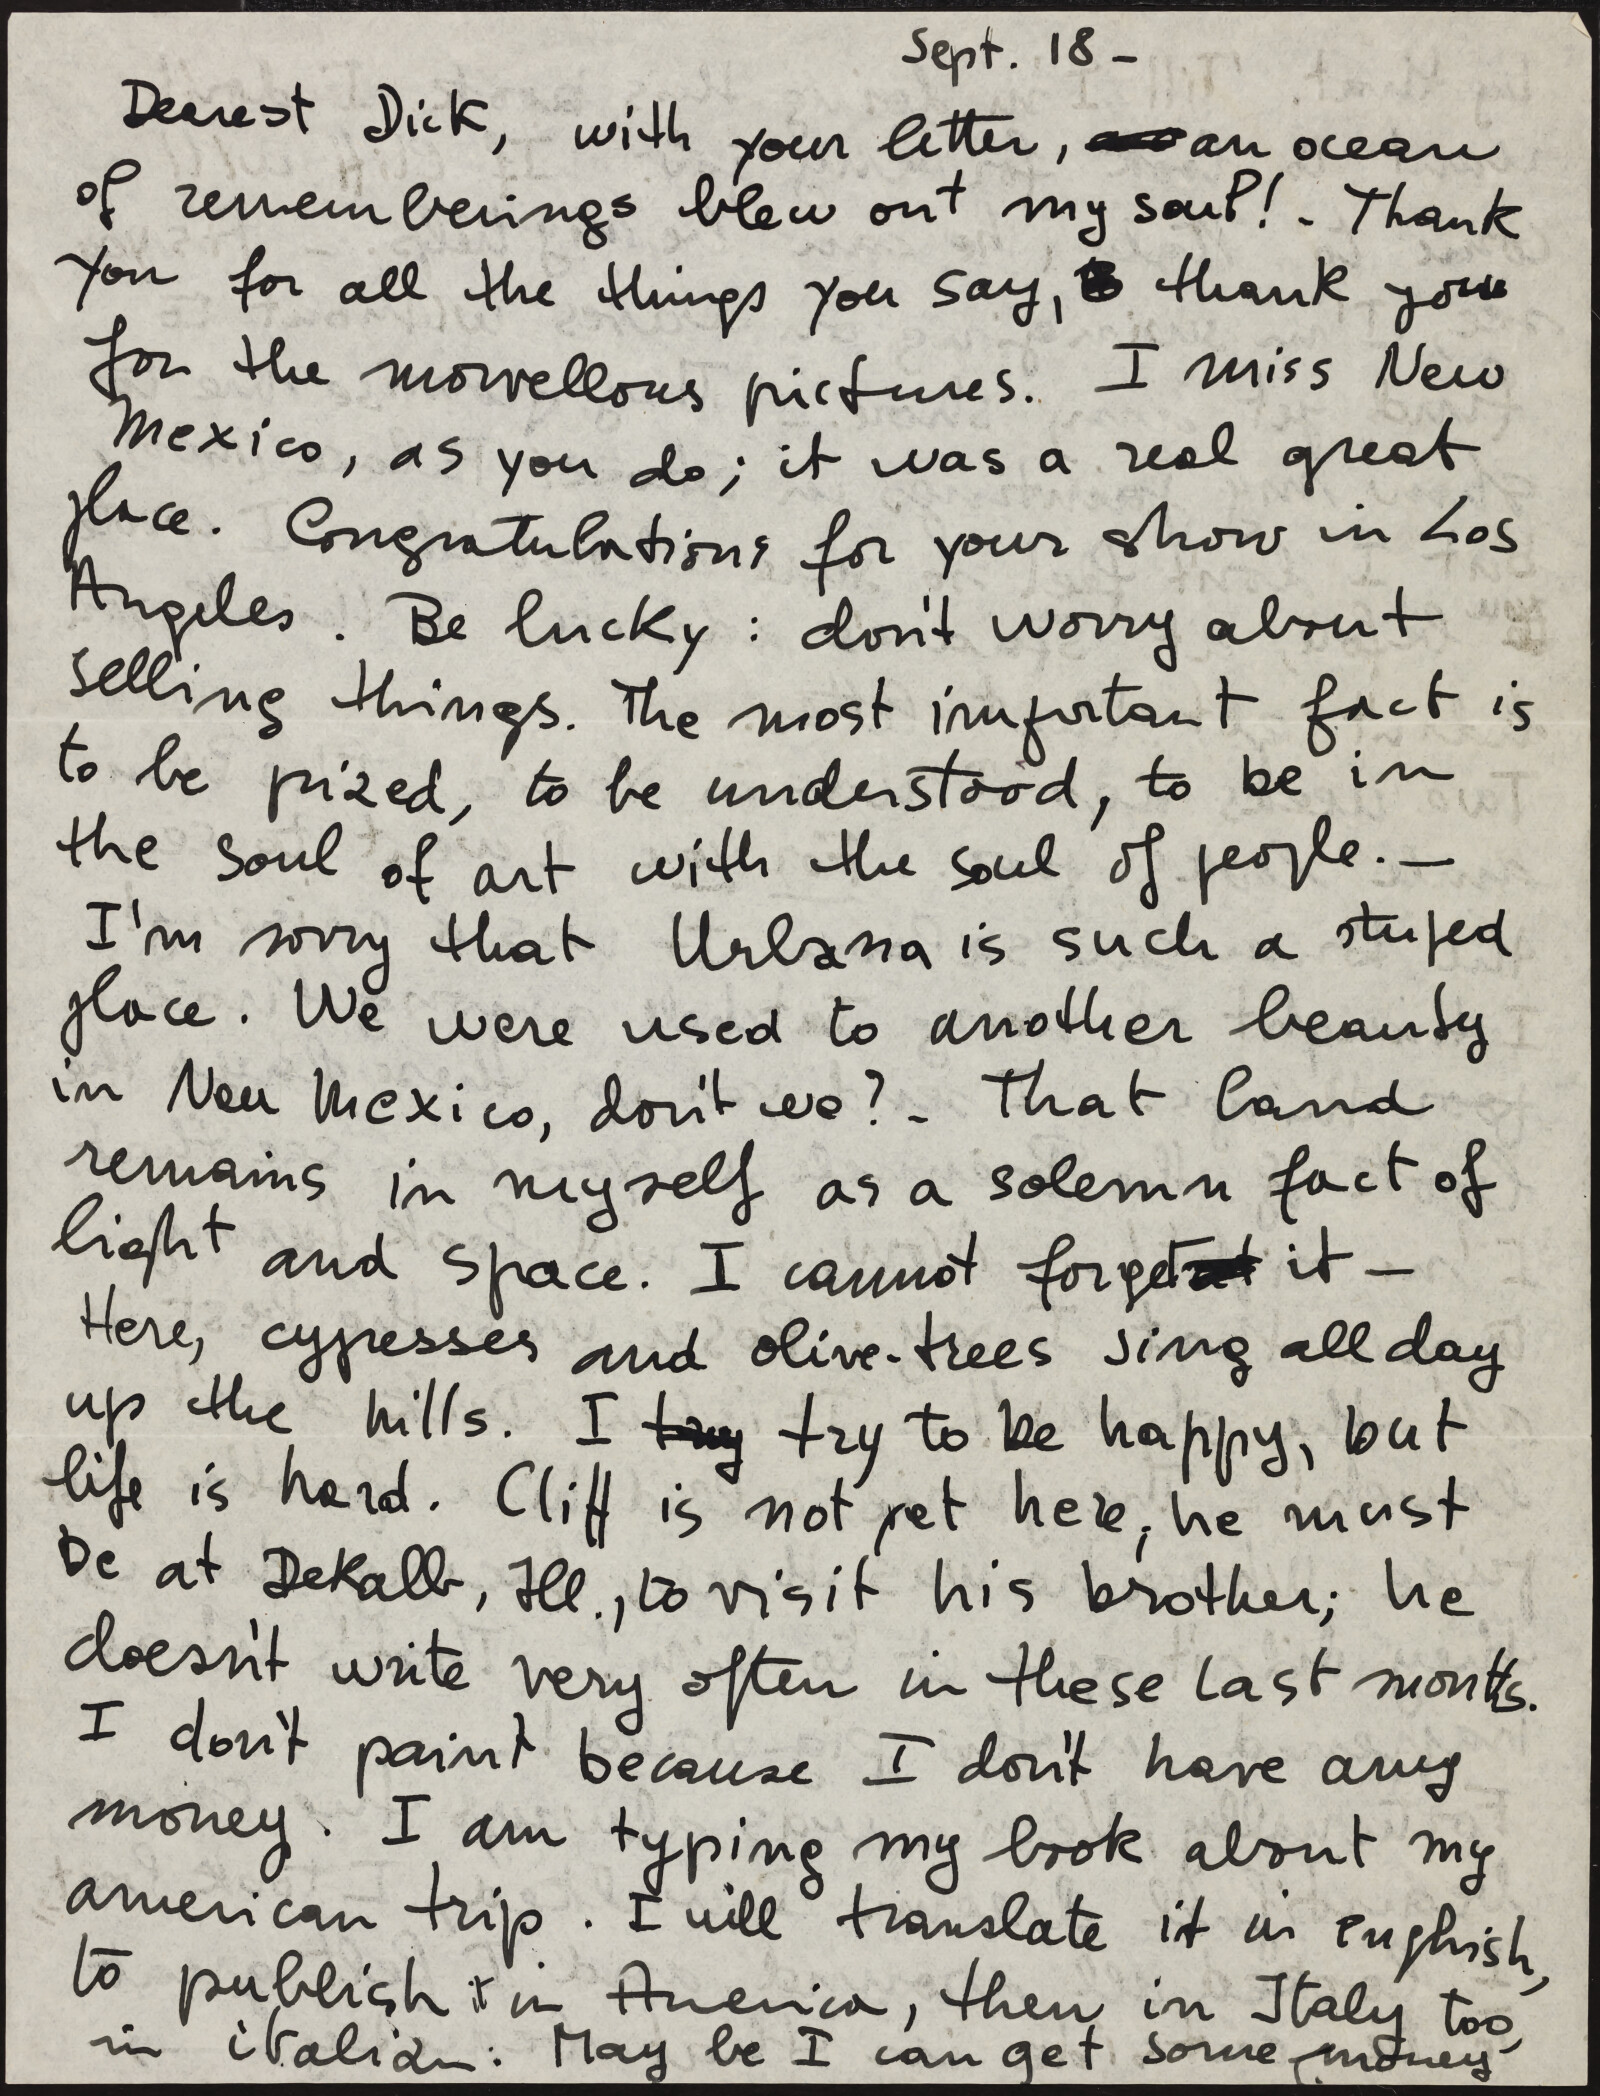 Sept. 18 -
Dearest Dick, with your letter, an ocean
of rememberings blew out my soul! - Thank
you for all the things you say, thank you
for the morvellous pictures. I miss New
Mexico, as you do; it was a real great
place. Congratulations for your show in Los
Angeles. Be lucky: don't worry about
selling things. The most important fact is
to be prized, to be understood, to be in
the soul of art with the soul of people. -
I'm sorry that Urbana is such a stuped
place. We were used to another beauty
in New Mexico, don't we? - That land
remains in myself as a solemn fact of
light and space. I cannot forget it -
Here, cypresses and olive-trees sing all day
up the hills. I try try to be happy, but
life is hard. Cliff is not yet here, he must
be at DeKalb, Ill., to visit his brother; he
doesn't write very often in these last months.
I don't paint because I don't have any
money. I am typing my book about my
american trip. I will translate it in english,
to publish it in America, then in Italy too,
in italian. May be I can get some money